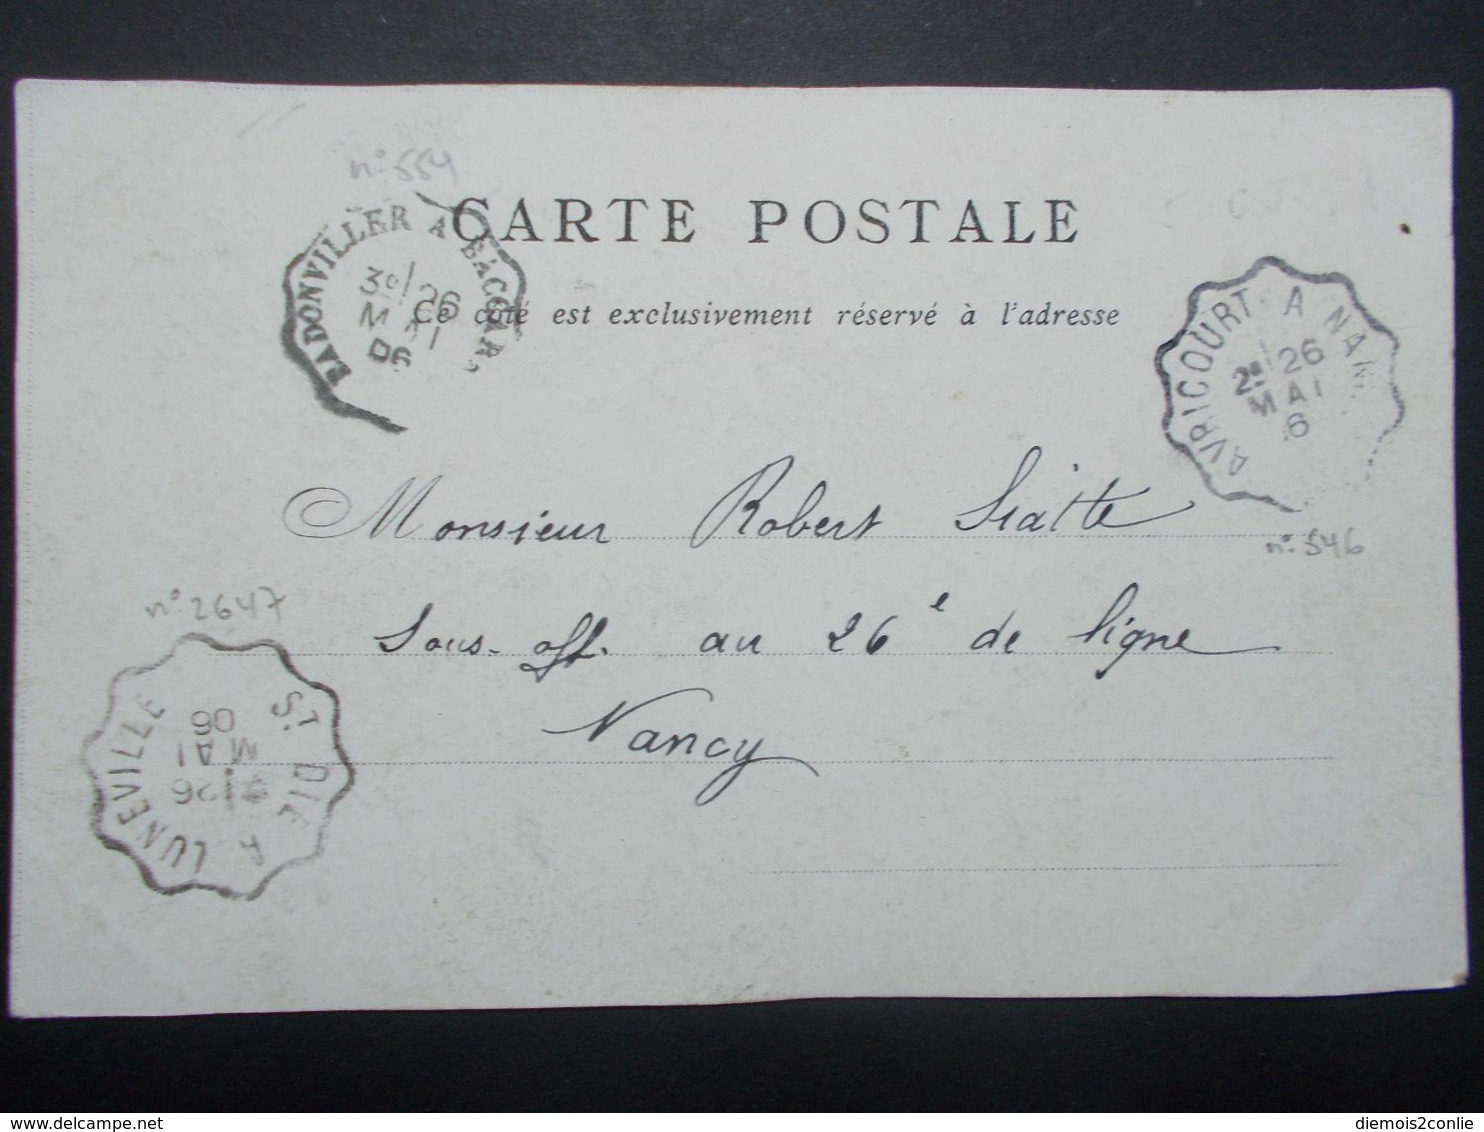 n° 554
CARTE POSTALE
BADONVILLER A BACCAR
3° 26
MAI
06
Ce côté est exclusivement réservé à l'adresse
AVRICOURT A NAN
2° 26
MAI
6
Monsieur Robert
n° 546
n° 2647
Sous-off. au 26e de ligne
Nancy
ST DIE A LUNEVILLE
26
MAI
06
delcampe.net
diemois2conlie